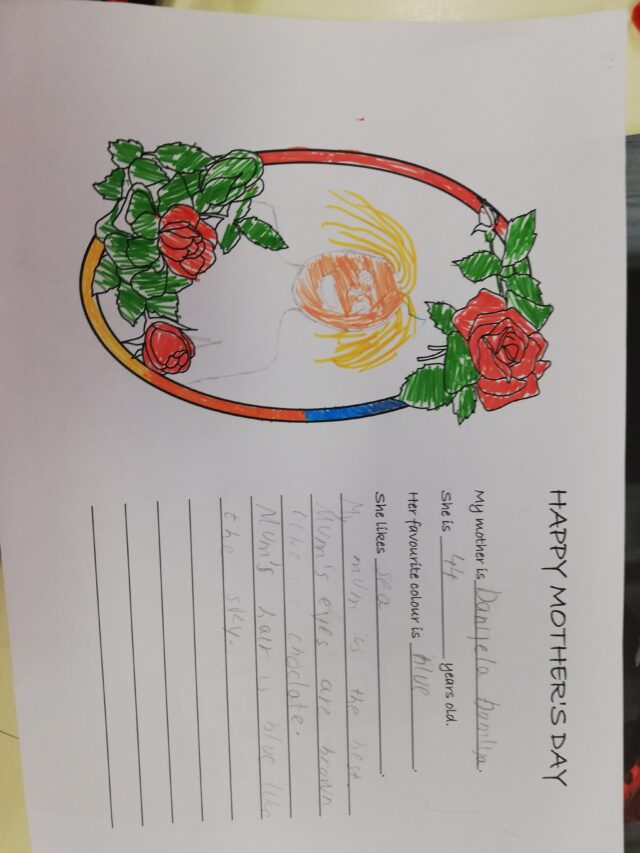 HAPPY MOTHER'S DAY
My mother is Danijela Danilija.
She is 44 years old.
Her favourite colour is blue.
She likes sea.
My mum is the best.
Mum's eyes are brown
like choclate.
Mum's hair is blue like
the sky.